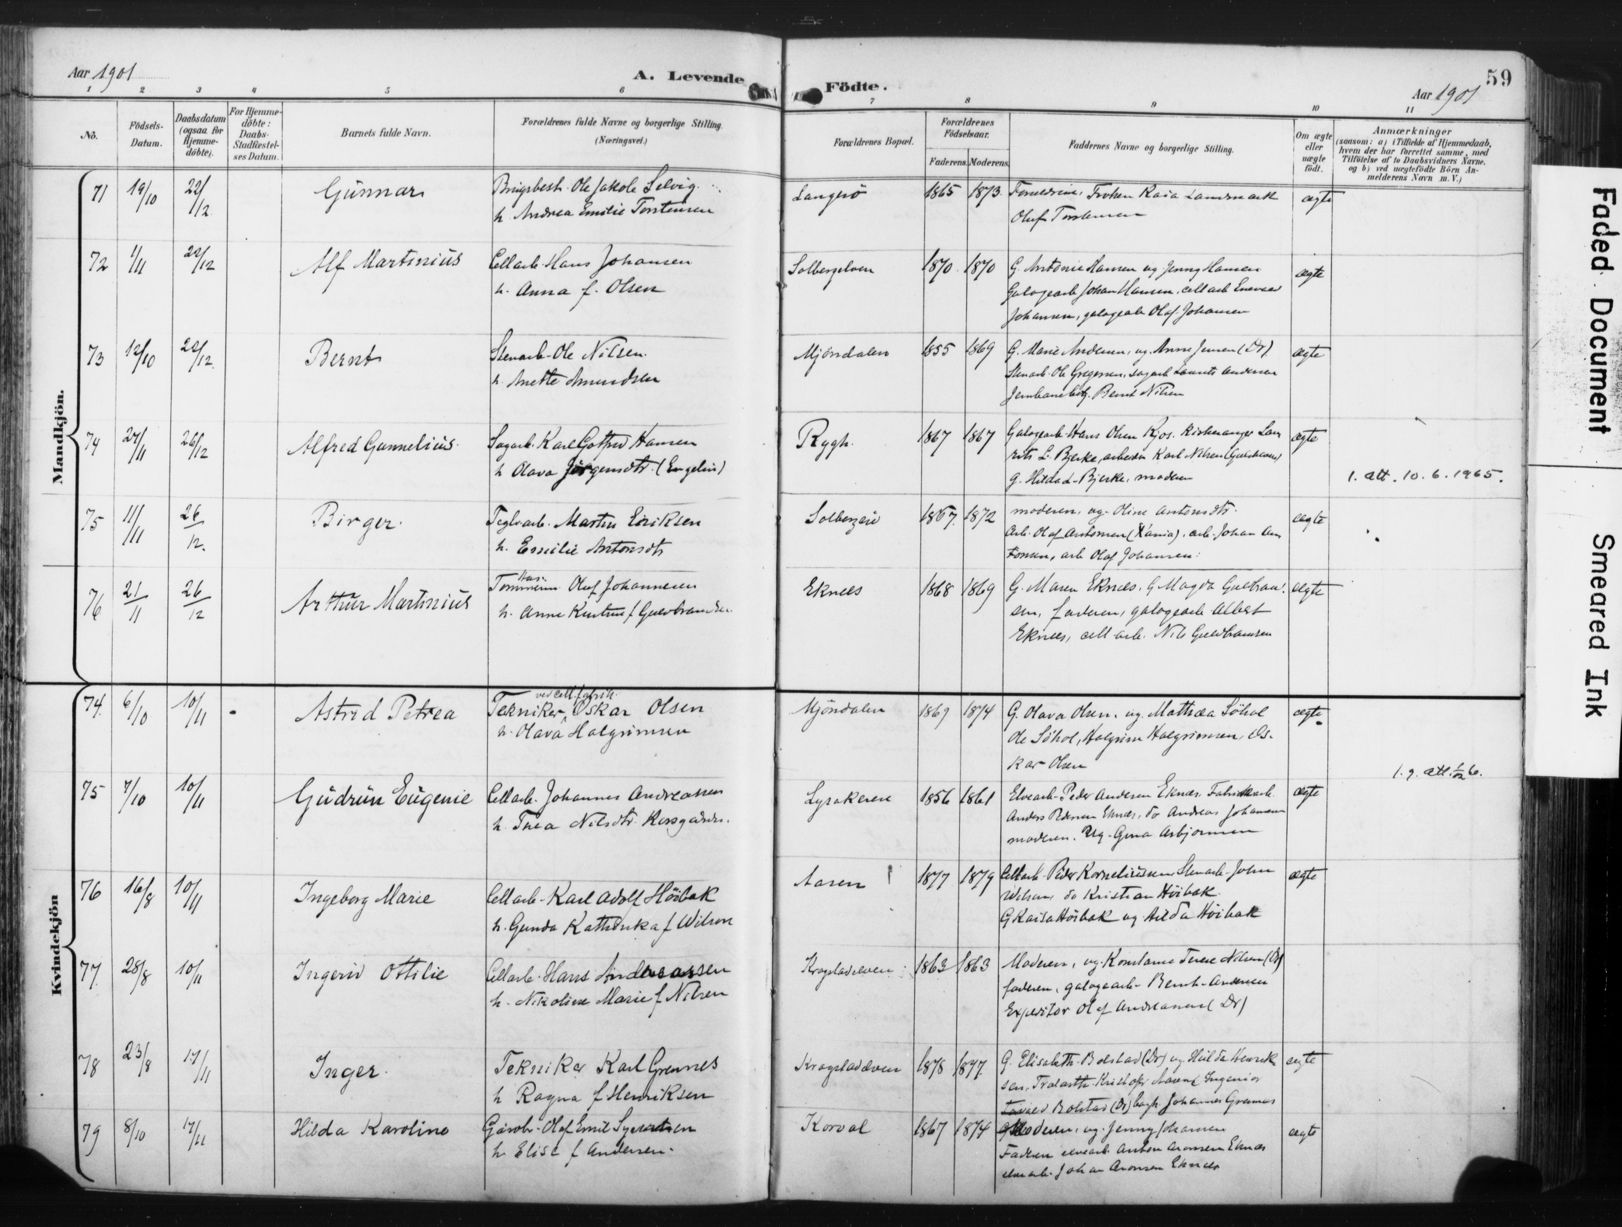 Aar 1901
A. Levende Födte.
59
Aar 1901
1 2 3 4 5 6 7 8 9 10 11
No.
Födsels-Datum.
Daabsdatum (ogsaa for Hjemme-döbte).
For Hjemme-döbte: Daabs-Stadfæstel-ses Datum.
Barnets fulde Navn.
Forældrenes fulde Navne og borgerlige Stilling (Næringsvei.)
Forældrenes Bopæl.
Forældrenes Födselsaar.
Faderens. Moderens.
Faddernes Navne og borgerlige Stilling.
Om ægte eller uægte födt.
Anmærkninger
(saasom: a) i Tilfælde af Hjemmedaab, hvem der har forrettet samme, med Tilföielse af to Daabsvidners Navne, og b) ved uægtefödte Börn An-melderens Navn m. V.)
Mandkjön.
71 19/10 22/12 Gunnar
Ole Jakob Selvig
h. Andrea Emilie Torstensen
Langesö 1865 1873 Forældrene, Fröken Kaia Landmark
Oluf Torstensen
ægte
72 1/11 22/12 Alf Martinius
Cellarb. Hans Johansen
h. Anna f. Olsen
Solbergelven 1870 1870 G. Antonie Hansen og Jenny Hansen
Galogearb. Johan Hansen, cellarb.
Johansen, galogearb. Olaf Johansen
ægte
73 12/10 22/12 Bernt
Stenarb. Ole Nilsen
h. Anette Amundsen
Mjöndalen 1855 1869 G. Marie Andersen, ug. Anne Jensen (Dr)
Stenarb. Ole Gregersen, sagarb. Laurits Andersen
Jernbanebetj. Bernt Nilsen
ægte
74 27/11 26/12 Alfred Gunnelius
Sagarb. Karl Gothard Hansen
h. Olava Jörgensdtr. (Engelin)
Rygh 1867 1867 Galogearb. Hans Olsen Kjos.
L. Bjerke, arbeider Karl Nilsen
G. Hilda L. Bjerke, moderen
ægte
1. att. 10.6.1965.
75 11/11 26/12. Birger
Teglv.arb. Martin Eriksen
h. Emilie Antonsdtr
Solbergeie 1867 1872 moderen, ug. Oline Antonsdtr.
Arb. Olaf Antonsen (Xania), arb. Johan An
tonsen, arb. Olaf Johansen
ægte
76 21/11 26/12 Arthur Martinius
Oluf Johannesen
h. Anne Kirstine f. Gulbrandsen
Eknes 1868 1869 G. Maren Eknes, G. Magda Gulbran
sen, faderen, galogearb. Albert
Eknes, cell arb. Nils Gulbransen
ægte
Kvindekjön
74 6/10 10/11 Astrid Petrea
ved cell.fabrik.
Tekniker Oskar Olsen
h. Olava Halgrimsen
Mjöndalen 1869 1874 G. Olava Olsen, ug. Mathea Söhol
Ole Söhol, Halgrim Halgrimsen, Os-
kar Olsen
ægte
75 7/10 10/11 Gudrun Eugenie
Cellarb. Johannes Andreassen
h. Thea Nilsdtr.
Lysakeren 1856 1861 Elvearb. Peder Andersen Eknes, Fabrikarb.
Anders Pedersen Eknes, do Andreas Johansen
moderen. Ug. Gina Asbjornsen
ægte
76 16/8 10/11 Ingeborg Marie
Cellarb. Karl Adolf Höibak
h. Gunda Kathinka f Wilson
Aasen 1877 1879 Cellarb. Peder Korneliussen Stenarb. John
Wilson, do Kristian Höibak
G Kaisa Höibak og Hilda Höibak
ægte
77 28/8 10/11 Ingerid Ottilie
Cellarb. Hans Andreassen
h. Nikoline Marie f Nilsen
Krogstadelven 1863 1863 Moderen, ug. Konstanse Terese Nilsen (Dr)
faderen, galogearb. Bernt Andersen
Expeditör Olaf Andreasen (Dr)
78 23/8 17/11 Inger
Tekniker Karl Grennes
h. Ragna f Henriksen
Krogstadelven 1878 1877 G. Elisabeth Bolstad (Dr) ug Hulda Henrik
sen,
Bolstad (Dr) Johannes Grennes
ægte
79 8/10 17/11 Hilda Karoline
Garvb. Olaf Emil Syvertsen
h. Elise f Andersen
Korval 1867 1874 Moderen, ug. Jenny Johansen
Faderen elvearb. Anton Aronsen Eknes
elvearb. Johan Aronsen Eknes
ægte
Faded Document
Smeared Ink